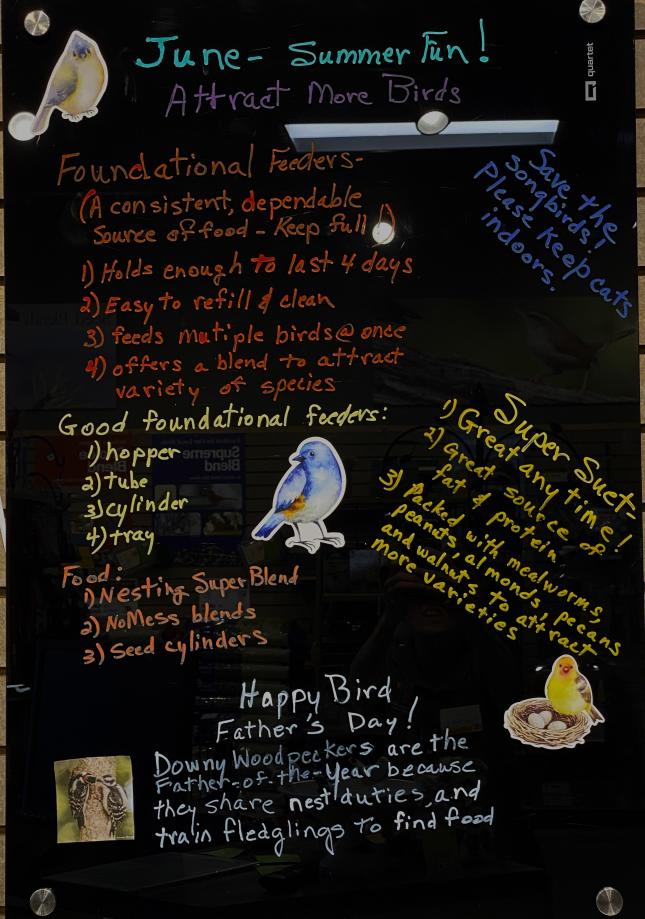 June- Summer Fun!
Attract More Birds
quartet
Foundational Feeders-
(A consistent, dependable
Source of food - Keep full!)
1) Holds enough to last 4 days
2) Easy to refill & clean
3) feeds mutiple birds @ once
4) offers a blend to attract
variety of species
Save the
songbirds!
Please keep cats
indoors.
Good foundational feeders:
1) hopper
2) tube
3) cylinder
4) tray
Supreme
Blend
Super Suet-
1) Great any time!
2) Great source of
fat & protein
3) Packed with mealworms,
peanuts, almonds, pecans
and walnuts to attract
more varieties
Food:
1) Nesting SuperBlend
2) NoMess blends
3) Seed cylinders
Happy Bird
Father's Day!
Downy Woodpeckers are the
Father-of-the-Year because
they share nest duties, and
train fledglings to find food